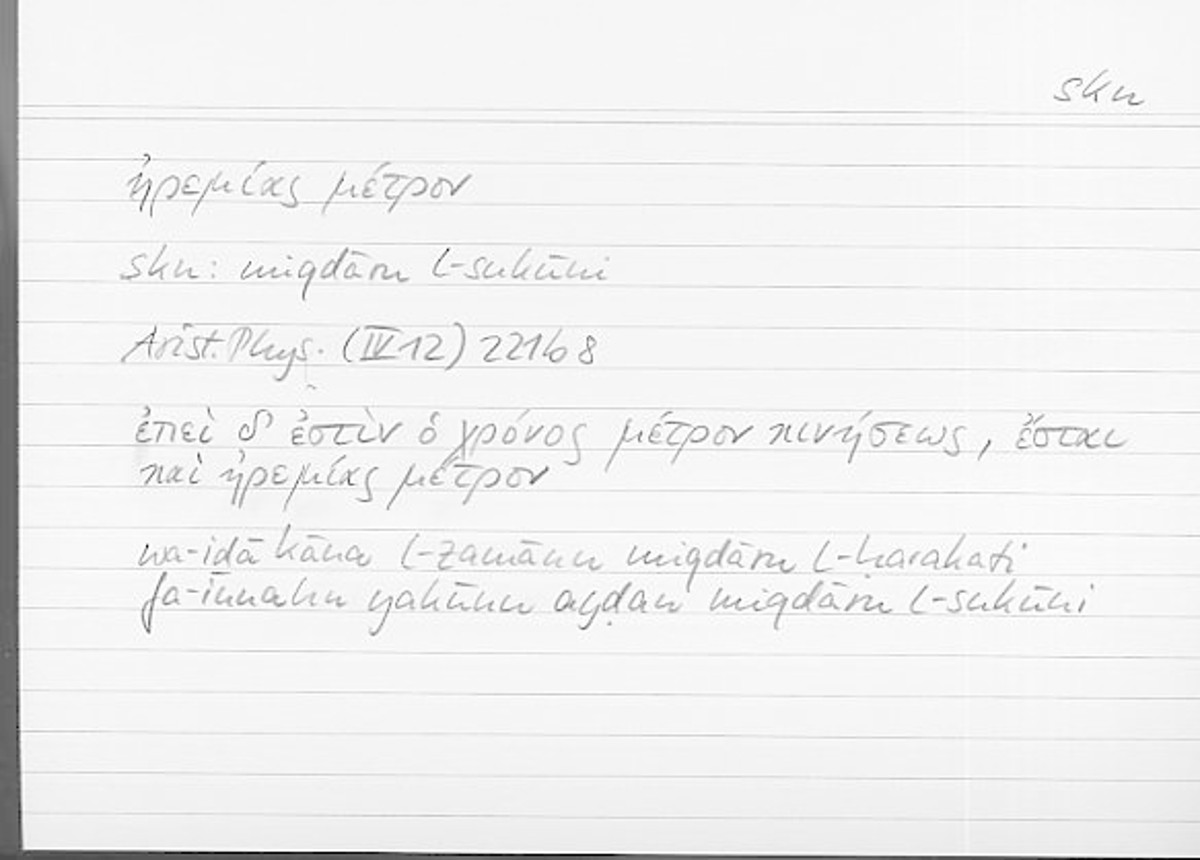 skn
ἠρεμίας μέτρον
skn: miqdāru l-sukūni
Arist. Phys. (IV 12) 221b8
ἐπεὶ δ' ἐστὶν ὁ χρόνος μέτρον κινήσεως, ἔσται
καὶ ἠρεμίας μέτρον
wa-iḏā kāna l-zamānu miqdāru l-ḥarakati
fa-innahu yakūnu ayḍan miqdāru l-sukūni